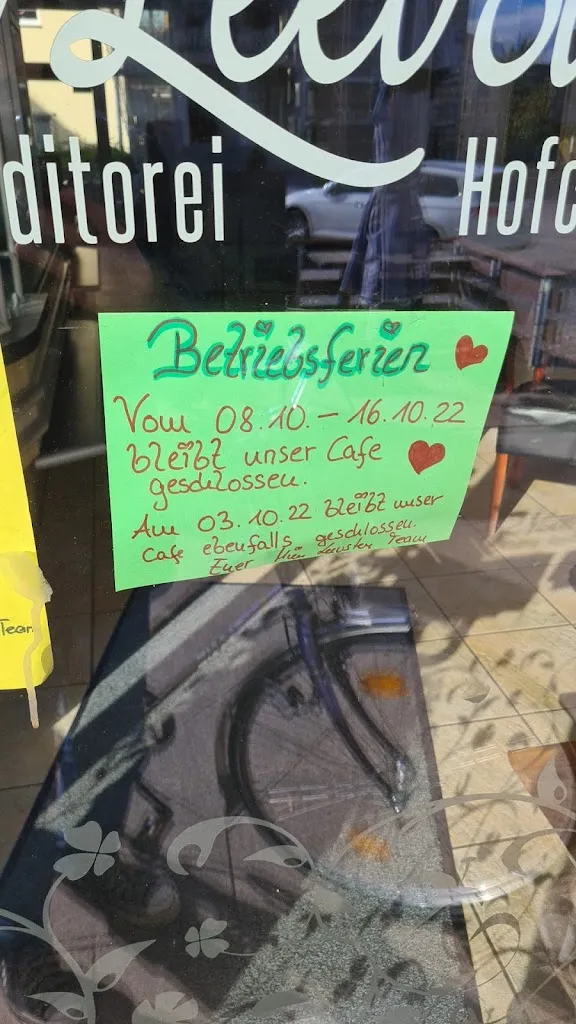 ditorei Hofc
Betriebsferien
Vom 08.10. – 16.10.22
bleibt unser Cafe
geschlossen.
Am 03.10.22 bleibt unser
Cafe ebenfalls geschlossen.
Euer Team
Team